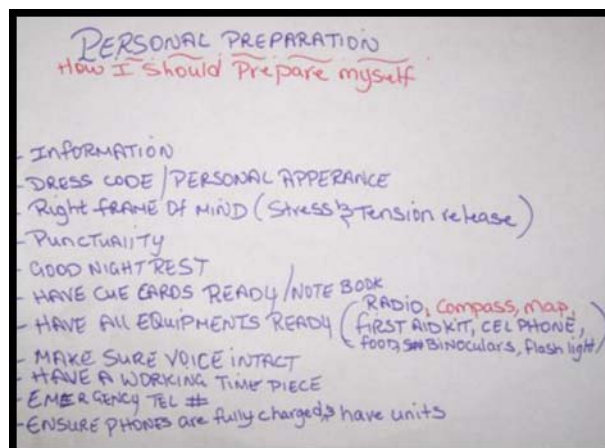 PERSONAL PREPARATION
How I should Prepare myself
- INFORMATION
- DRESS CODE / PERSONAL APPERANCE
- Right FRAME OF MIND (Stress & Tension release)
- PUNCTUALITY
- GOOD NIGHT REST
- HAVE CUE CARDS READY / NOTE BOOK
- HAVE All EQUIPMENTS READY (RADIO, Compass, map,
FIRST AID KIT, CEL PHONE,
food, Binoculars, flash light)
- MAKE SURE VOICE INTACT
- HAVE A WORKING TIME PIECE
- EMERGENCY TEL #
- ENSURE PHONES are fully charged, & have units